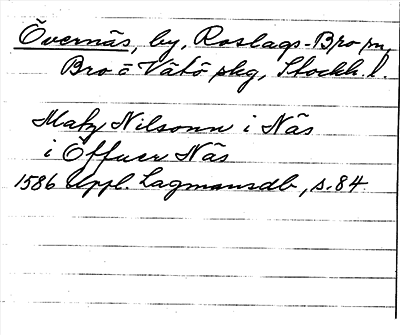 Övernäs, by, Roslags-Bro sn,
Bro o Vätö skg, Stockh. l.
Matz Nilsonn i Näs
i Öffuer Näs
1586 Uppl. Lagmansdb, s. 84